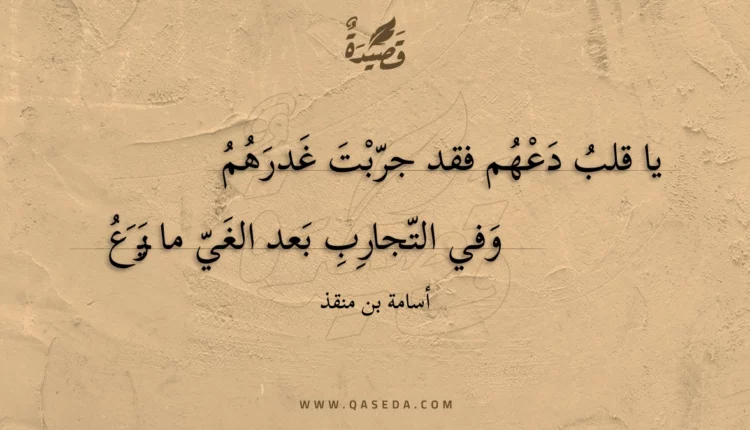 قَصِيدَةٌ
يا قلبُ دَعْهُم فقد جرّبْتَ غَدرَهُمُ
وَفي التّجارِبِ بَعد الغَيّ ما يَزَعُ
أسامة بن منقذ
WWW.QASEDA.COM